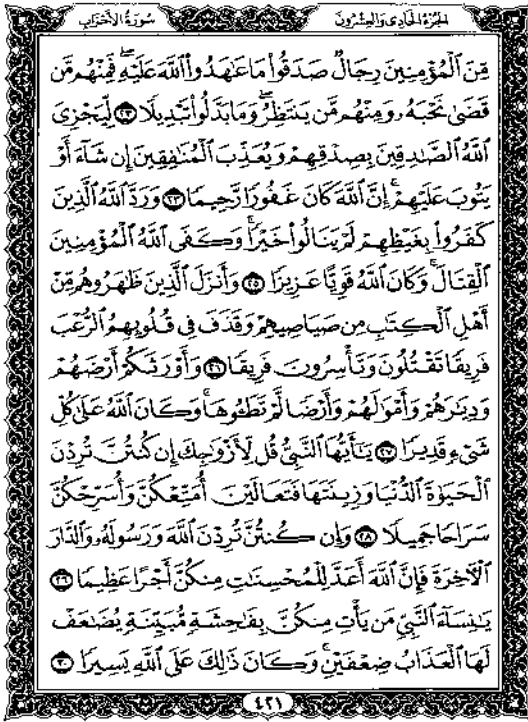 سُورَةُ الأَحْزَابِ
الجُزْءُ الحَادِى وَالعِشْرُونَ
مِّنَ ٱلْمُؤْمِنِينَ رِجَالٌ صَدَقُوا۟ مَا عَـٰهَدُوا۟ ٱللَّهَ عَلَيْهِ ۖ فَمِنْهُم مَّن
قَضَىٰ نَحْبَهُۥ وَمِنْهُم مَّن يَنتَظِرُ ۖ وَمَا بَدَّلُوا۟ تَبْدِيلًا ٢٣ لِّيَجْزِىَ
ٱللَّهُ ٱلصَّـٰدِقِينَ بِصِدْقِهِمْ وَيُعَذِّبَ ٱلْمُنَـٰفِقِينَ إِن شَآءَ أَوْ
يَتُوبَ عَلَيْهِمْ ۚ إِنَّ ٱللَّهَ كَانَ غَفُورًا رَّحِيمًا ٢٤ وَرَدَّ ٱللَّهُ ٱلَّذِينَ
كَفَرُوا۟ بِغَيْظِهِمْ لَمْ يَنَالُوا۟ خَيْرًا ۚ وَكَفَى ٱللَّهُ ٱلْمُؤْمِنِينَ
ٱلْقِتَالَ ۚ وَكَانَ ٱللَّهُ قَوِيًّا عَزِيزًا ٢٥ وَأَنزَلَ ٱلَّذِينَ ظَـٰهَرُوهُم مِّنْ
أَهْلِ ٱلْكِتَـٰبِ مِن صَيَاصِيهِمْ وَقَذَفَ فِى قُلُوبِهِمُ ٱلرُّعْبَ
فَرِيقًا تَقْتُلُونَ وَتَأْسِرُونَ فَرِيقًا ٢٦ وَأَوْرَثَكُمْ أَرْضَهُمْ
وَدِيَـٰرَهُمْ وَأَمْوَٰلَهُمْ وَأَرْضًا لَّمْ تَطَـُٔوهَا ۚ وَكَانَ ٱللَّهُ عَلَىٰ كُلِّ
شَىْءٍ قَدِيرًا ٢٧ يَـٰٓأَيُّهَا ٱلنَّبِىُّ قُل لِّأَزْوَٰجِكَ إِن كُنتُنَّ تُرِدْنَ
ٱلْحَيَوٰةَ ٱلدُّنْيَا وَزِينَتَهَا فَتَعَالَيْنَ أُمَتِّعْكُنَّ وَأُسَرِّحْكُنَّ
سَرَاحًا جَمِيلًا ٢٨ وَإِن كُنتُنَّ تُرِدْنَ ٱللَّهَ وَرَسُولَهُۥ وَٱلدَّارَ
ٱلْـَٔاخِرَةَ فَإِنَّ ٱللَّهَ أَعَدَّ لِلْمُحْسِنَـٰتِ مِنكُنَّ أَجْرًا عَظِيمًا ٢٩
يَـٰنِسَآءَ ٱلنَّبِىِّ مَن يَأْتِ مِنكُنَّ بِفَـٰحِشَةٍ مُّبَيِّنَةٍ يُضَـٰعَفْ
لَهَا ٱلْعَذَابُ ضِعْفَيْنِ ۚ وَكَانَ ذَٰلِكَ عَلَى ٱللَّهِ يَسِيرًا ٣٠
٤٢١